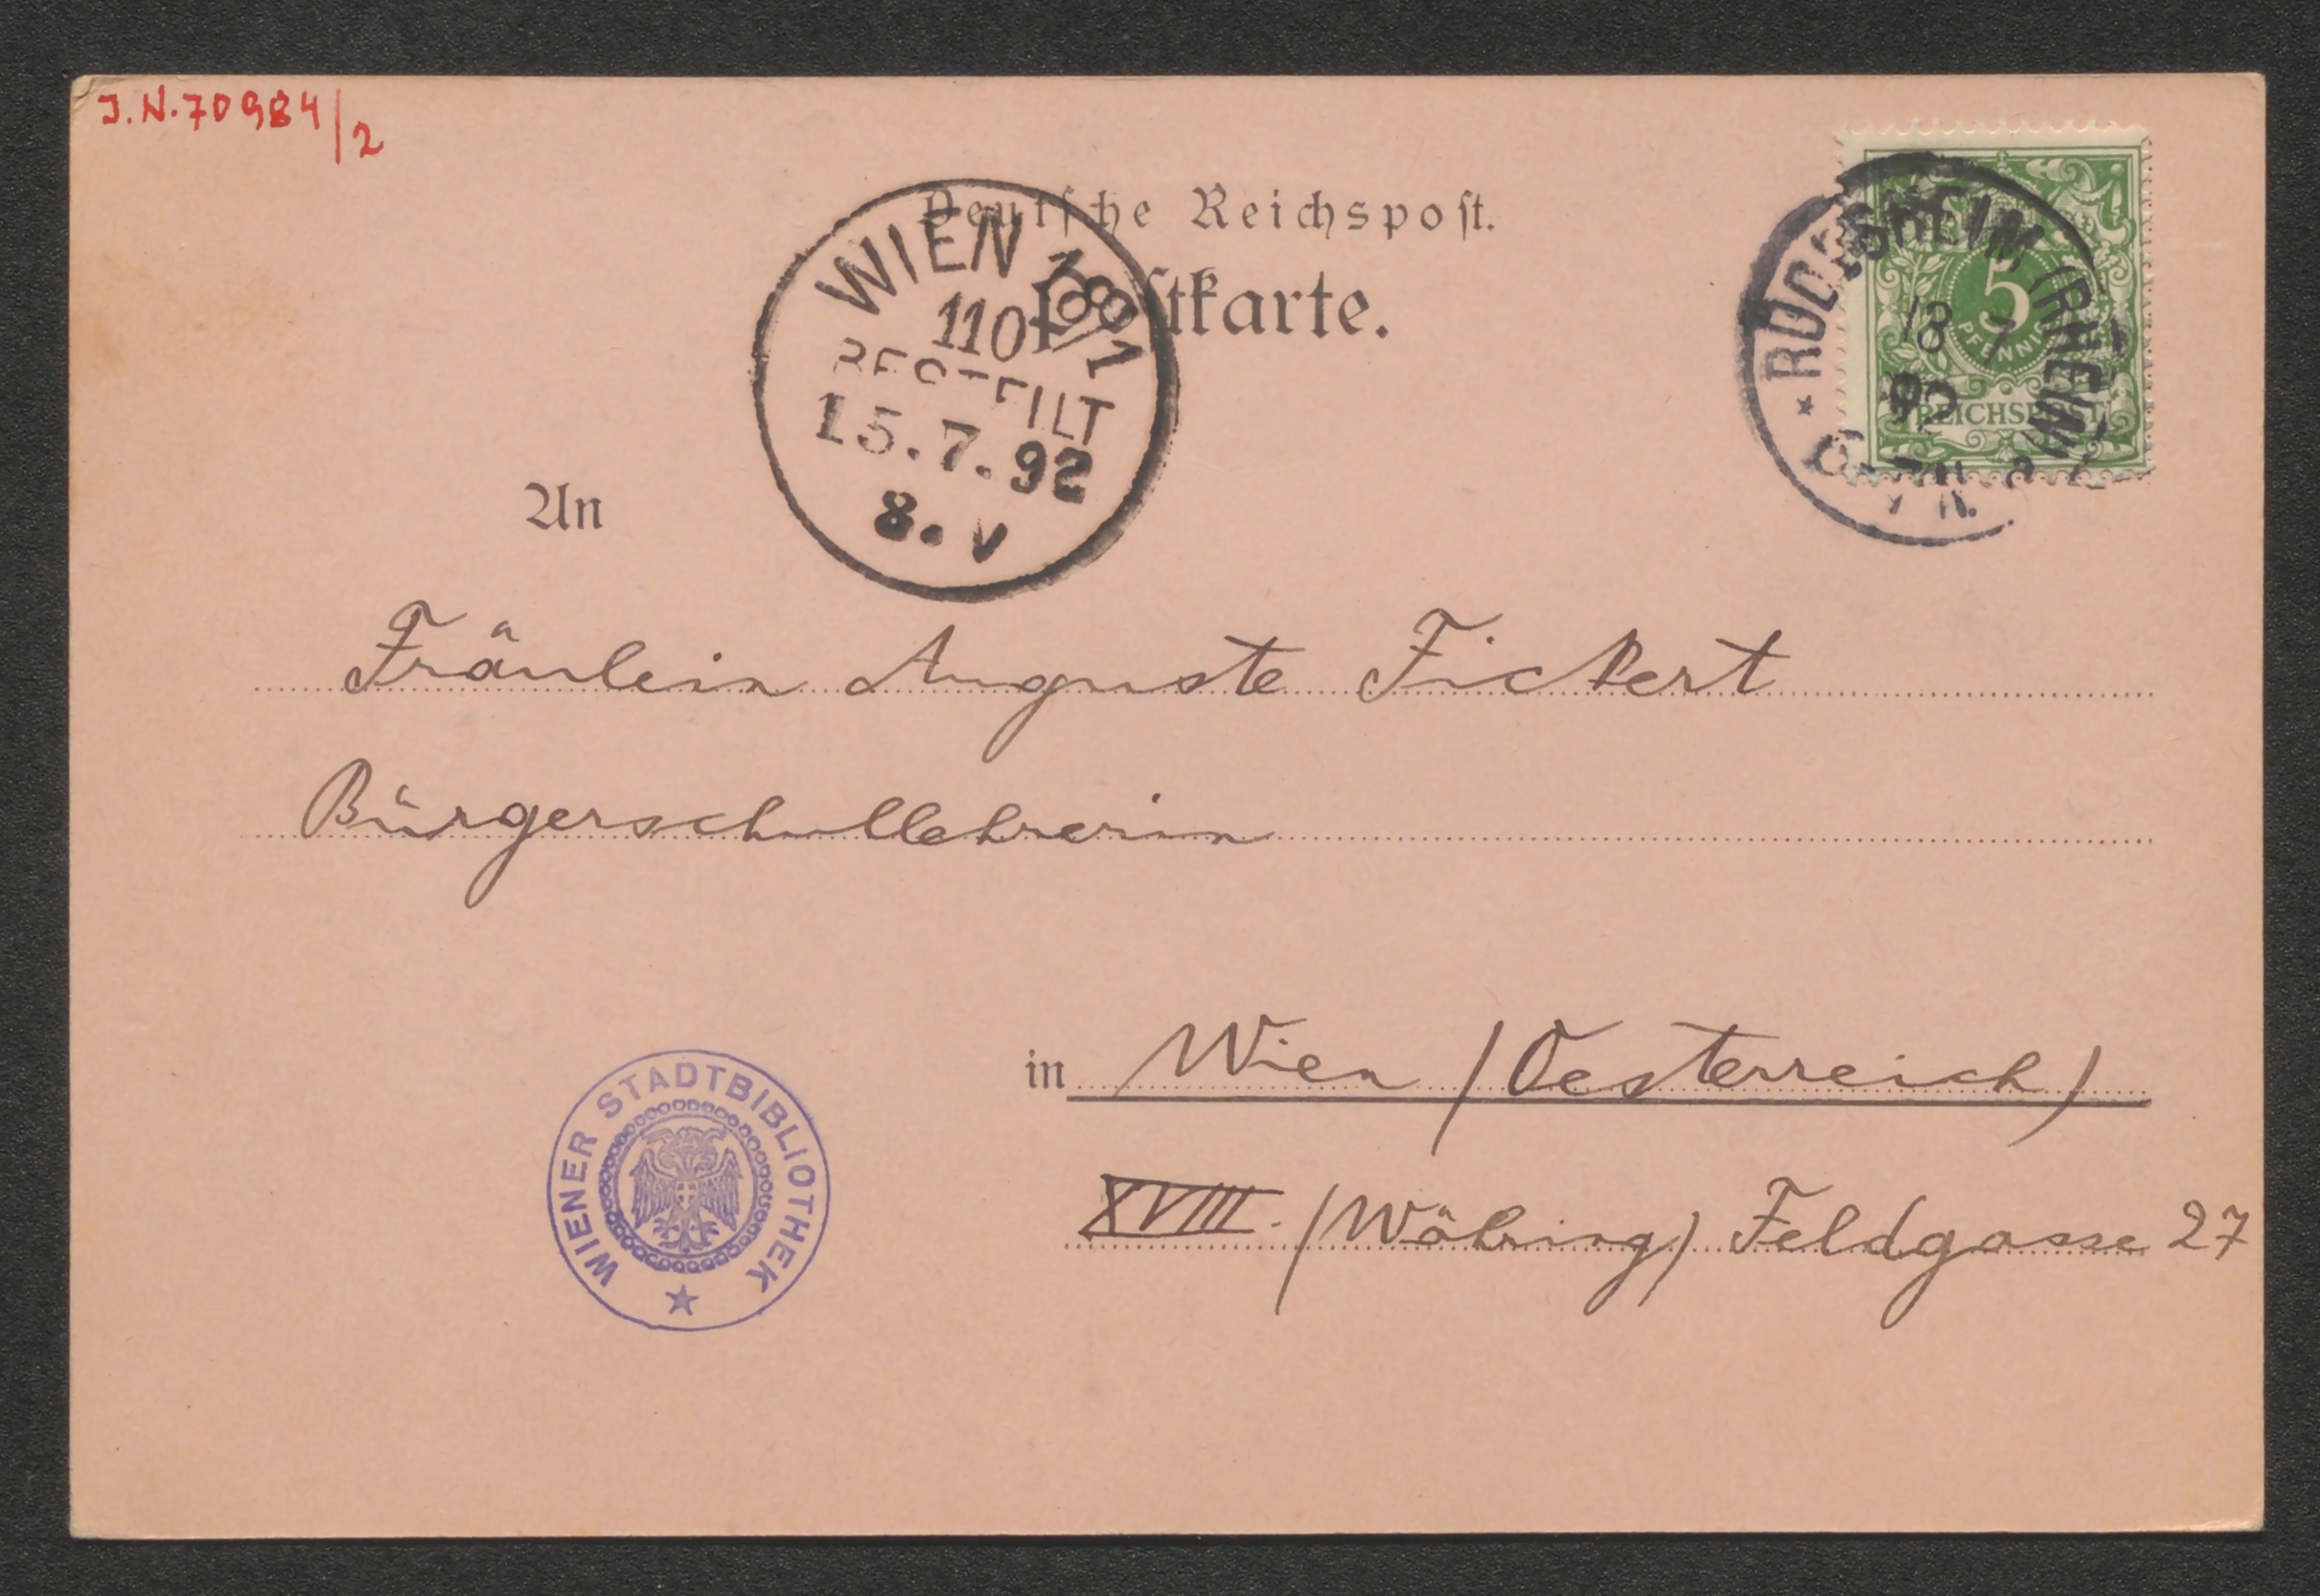 J.N. 70984/2
Deutsche Reichspost.
Postkarte.
WIEN 18/1
110
BESTELLT
15.7.92
8. V
RÜDESHEIM (RHEIN)
13 7
92
5
PFENNIG
REICHSPOST
An
Fräulein Auguste Fickert
Bürgerschullehrerin
in Wien /Oesterreich/
XVIII. /Währing/ Feldgasse 27
WIENER STADTBIBLIOTHEK